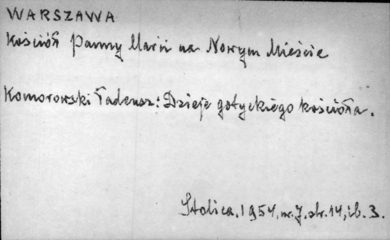 WARSZAWA
Kościół Panny Marii na Nowym Mieście
Komorowski Tadeusz: Dzieje gotyckiego kościoła.
Stolica. 1954, nr. 7. str. 14, ib. 3.